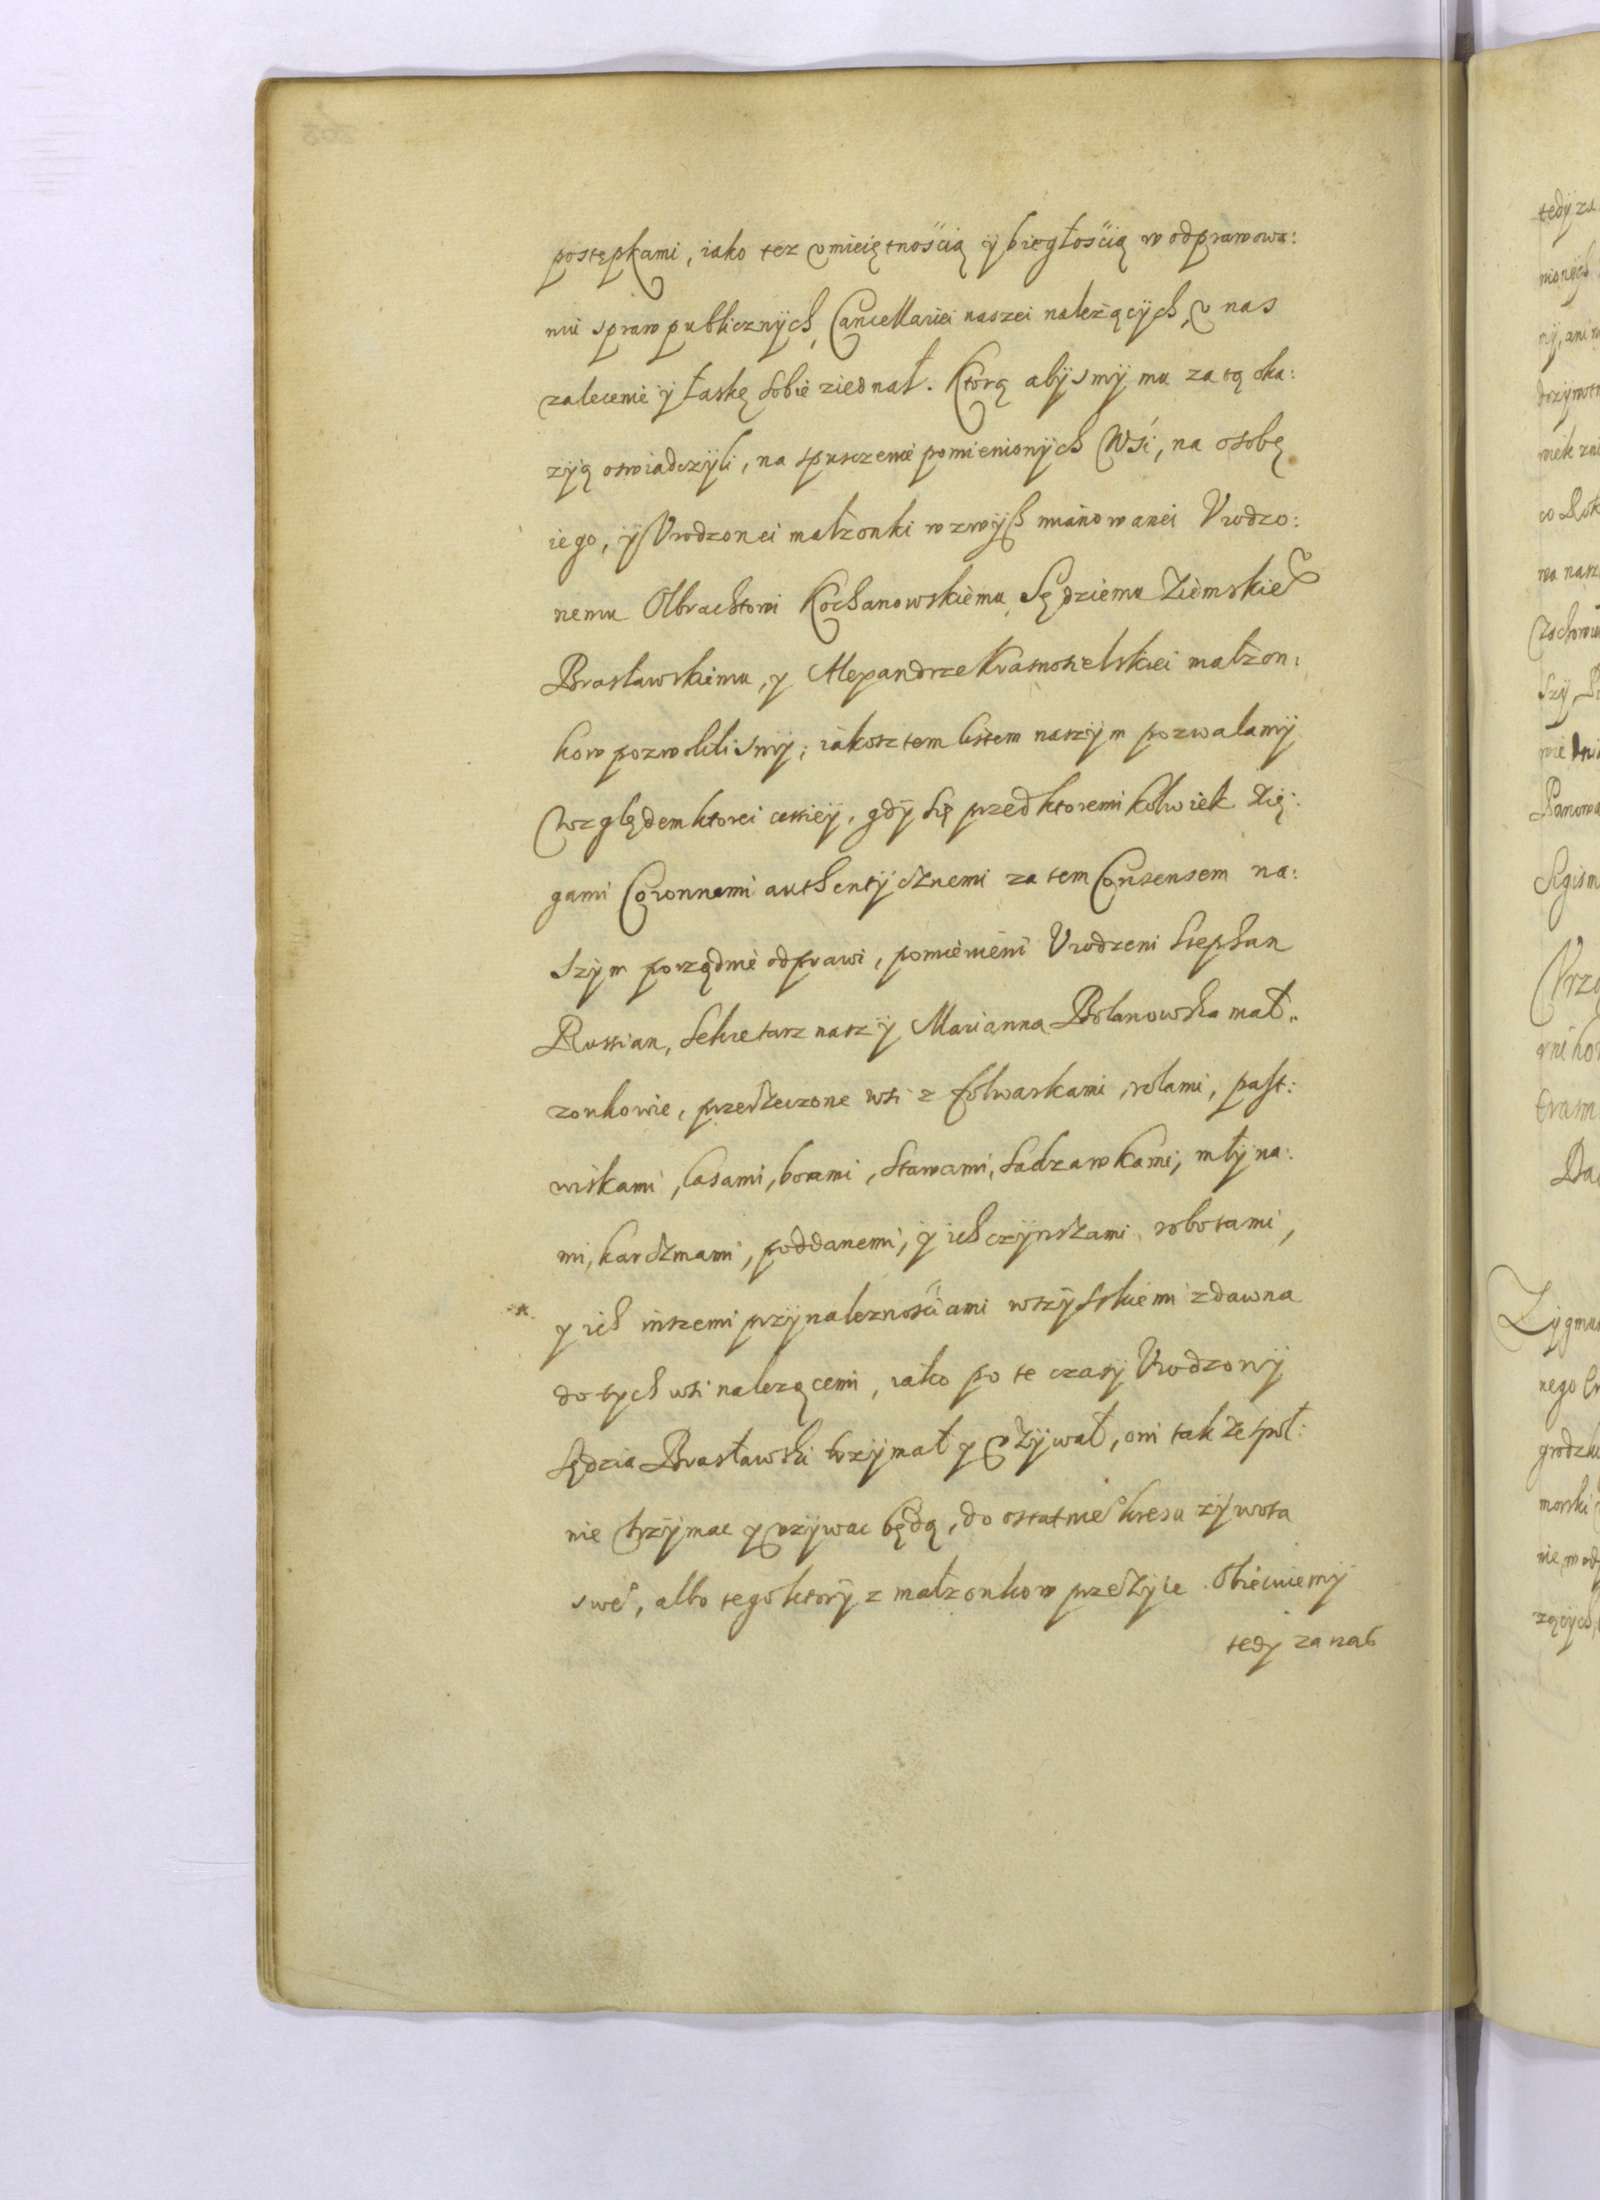 postępkami, iako tez vmieiętnością ÿ biegłością w odprawowa:
niu spraw publicznÿch, Cancellariei naszei należącÿch, v nas
zalecenie ÿ łaskę sobie ziednał. Ktorą abÿsmÿ mu za tą oka:
zÿą oswiadczÿli, na spusczenie pomienionÿch Wśi, na osobę
iego, ÿ Vrodzonei małżonki wzwÿß mianowanei Vrodzo:
nemu Olbrachtowi Kochanowskiemu Sędziemu Ziemskie
Brasławskiemu, y Alexandrze Krasnosielskiei małżon:
kow pozwolilismÿ, iakosz tem listem naszÿm pozwalamÿ
Względem ktorei cessieÿ, gdÿ się przed ktoremi kolwiek Xię:
gami Coronnemi authentÿcżnemi za tem Consensem na:
szÿm porządnie odprawi, pomienieni Vrodzeni Stephan
Russian, Sekretarz nasz ÿ Marianna Bolanowska mał:
zonkowie, przerżeczone wsi z folwarkami, rolami, past:
wiskami, lasami, borami, stawami, sadzawkami, młÿna:
mi, karcżmami, poddanemi, ÿ ich czÿnszami robotami,
y ich inszemi przÿnaleznościami wszÿstkiemi zdawna
do tych wsi nalezącemi, iako po te czasÿ Vrodzonÿ
Sędzia Brasławski trzÿmał y vżÿwał, oni także społ:
nie trzÿmac y vzÿwac będą, do ostatnie° kresu zÿwota
swe°, albo tego ktorÿ z małżonkow przeżÿie. Obiecuiemÿ
tedy za nas